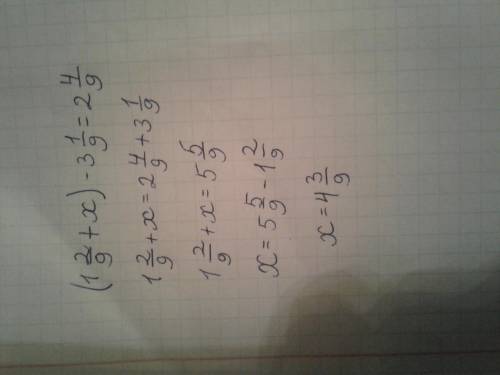 (1 2/9 + x) - 3 1/9 = 2 4/9
1 2/9 + x = 2 4/9 + 3 1/9
1 2/9 + x = 5 5/9
x = 5 5/9 - 1 2/9
x = 4 3/9